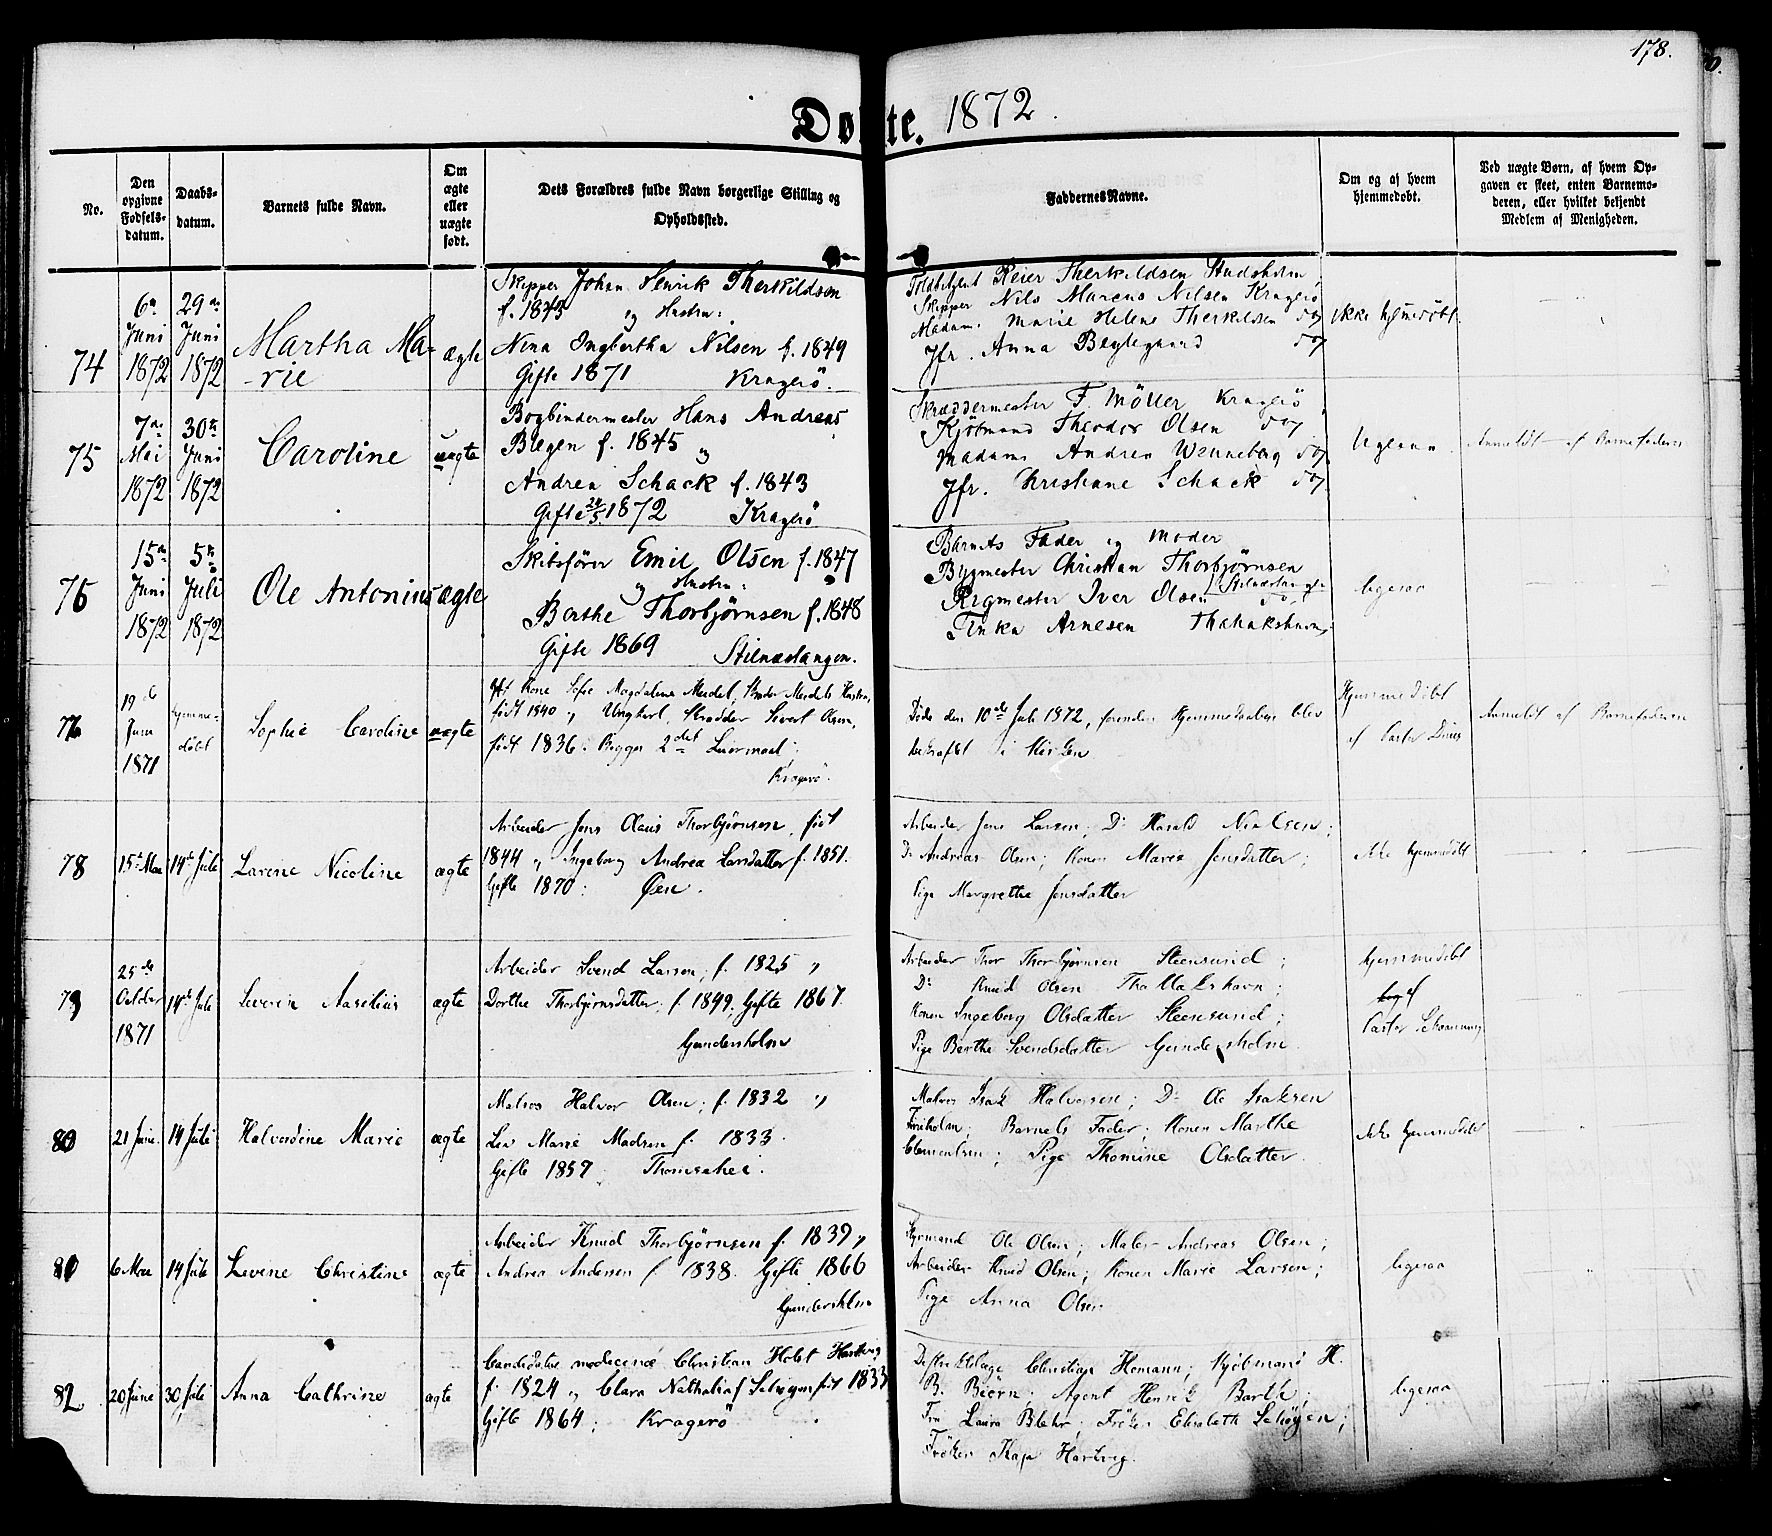 178.
Døbte. 1872.
No.
Den opgivne Fødselsdatum.
Daabsdatum.
Barnets fulde Navn.
Om ægte eller uægte født.
Dets Forældres fulde Navn borgerlige Stilling og Opholdssted.
Faddernes Navne.
Om og af hvem hjemmedøbt.
Ved uægte Børn, af hvem Opgaven er skeet, enten Barnemoderen, eller hvilket bekjendt Medlem af Menigheden.
74
6te Juni 1872
29de Juni 1872
Martha Ma-
-rie
ægte
Skipper Johan Henrik Therkildsen
f. 1843 og Hustru:
Nina Ingbertha Nilsen f. 1849
Gifte 1871 Kragerö.
Reier Therkildsen
Skipper Nils Marcus Nilsen Kragerö
Madam Marie Helene Therkildsen
Jfr. Anna
ikke hjemmedöbt.
75
7de Mai 1872
30te Juni 1872
Caroline
uægte
Bogbindermester Hans Andreas
f. 1845 og
Andrea Schack f. 1843
Gifte 24/5 1872 Kragerö
Skræddermester F. Möller Kragerö
Kjöbmand Theodor Olsen
Madam Andrea Wenneberg
Jfr. Christiane Schack
Anmeldt af Barnefaderen
76
15de Juni 1872
5te Juli 1872
Ole Antonius
ægte
Skibsförer Emil Olsen f. 1847
og Hustru:
Berthe Thorbjörnsen f. 1848
Gifte 1869 Stilnestangen.
Barnets Fader og Moder
Bygmester Christian Thorbjörnsen
Rigmester Iver Olsen
Tinka Arnesen
ligesaa
19de Juni 1871
hjemme-
döbt
Sophie Caroline
uægte
Kone Sofie Magdalene
född 1840 Ungkarl, Skrædder Sivert Olsen,
född 1836. Begges 2det Leiermaal;
Kragerö.
Döde den 10de Juli 1872, forinden Hjemmedaaben blev
bekræftet i Kirken.
Hjemmedöbt
af Pastor
Anmeldt af Barnefaderen
78
15de Mai
14de Juli
Larine Nicoline
ægte
Arbeider Jens Olaus Thorbjörnsen, född
1844 og Ingeborg Andrea Larsdatter f. 1851.
Gifte 1870: Öen.
Arbeider Jens Larsen; Do Harald Nielsen;
Do Andreas Olsen; Konen Maria Jensdatter;
Pige Margrethe Jensdatter
ikke hjemmedöbt
79
25de October 1871
14de Juli
Severin
ægte
Arbeider Svend Larsen; f. 1825 og
Dorthe Thorbjörnsdatter; f. 1849; Gifte 1867.
Gundersholm
Arbeider Thor Thorbjörnsen Steensund;
Do Knud Olsen Thallakshavn;
Konen Ingeborg Olsdatter Steensund;
Pige Berthe Svendsdatter Gundersholm.
hjemmedöbt
af
Pastor
80
21 Juni.
14 Juli
Halvardine Marie
ægte
Matros Halvor Olsen; f. 1832 og
Lea Marie Madsen f. 1833.
Gifte 1857. Thomashei.
Matros Isak Halvorsen; Do Ole Isaksen
Barnets Fader; Konen Marthe
Clementsen; Pige Thomine Olsdatter.
ikke hjemmedöbt
81
6 Mai
14 Juli
Levine Christine
ægte
Arbeider Knud Thorbjörnsen f. 1839 og
Andrea Andersen f. 1838. Gifte 1866
Gundersholm
Styrmand Ole Olsen; Maler Andreas Olsen;
Arbeider Knud Olsen; Konen Marie Larsen;
Pige Anna Olsen
ligesaa
82
20 Juni
30 Juli
Anna Cathrine
ægte
Candidatus medicinæ Christian Holst Hartvig
f. 1824 og Clara Nathalia född 1833
Gifte 1864; Kragerö
Christian Homann; Kjöbmand H.
B. Biörn; Agent Henrik Barth;
Fru Laura Blehr; Fröken Elisabeth;
Fröken Kaja Hartvig.
ligesaa